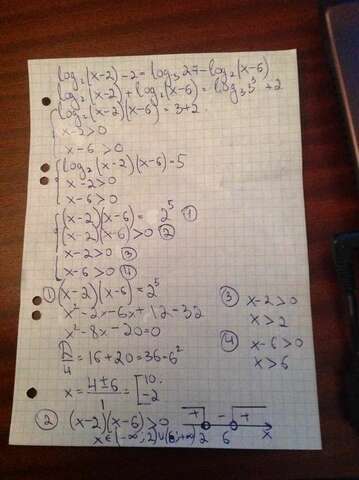 log₂(x-2)-2=log₃27-log₂(x-6)
log₂(x-2)+log₂(x-6)=log₃3³+2
log₂(x-2)(x-6)=3+2
x-2>0
x-6>0
log₂(x-2)(x-6)-5
x-2>0
x-6>0
(x-2)(x-6)=2⁵ ①
(x-2)(x-6)>0 ②
x-2>0 ③
x-6>0 ④
① (x-2)(x-6)=2⁵
x²-2x-6x+12-32
x²-8x-20=0
D/4=16+20=36-6²
x=4±6/1=[10. -2
③ x-2>0
x>2
④ x-6>0
x>6
② (x-2)(x-6)>0
x∈(-∞;2)∪(6;+∞)
+ - +
2 6 x